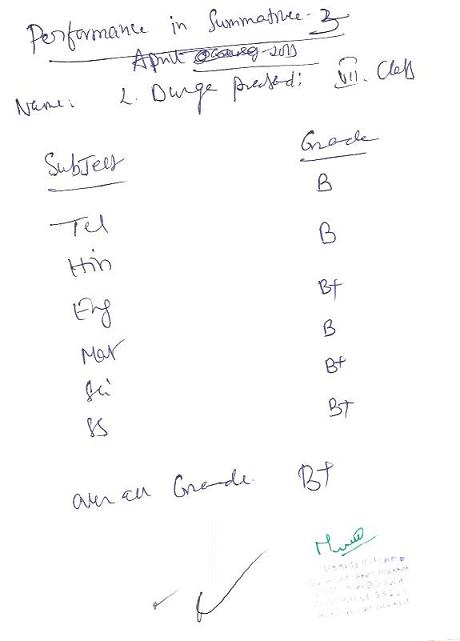 Performance in Summative-3
April 2013
Name: L. Durga prasad; VII. Class
Subject Grade
Tel B
Hin B
Eng B+
Mat B
Sci B+
SS B+
over all Grade. B+